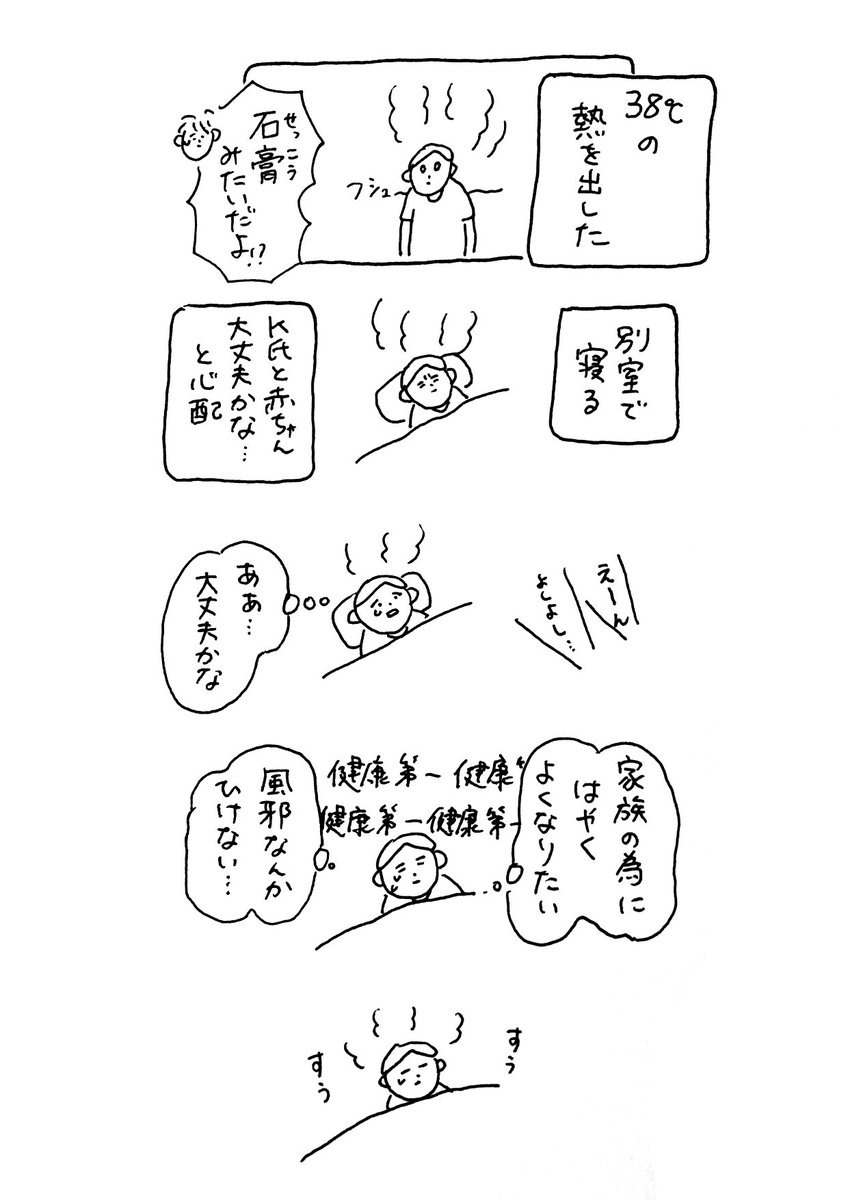 38℃の
熱を出した
フシュー
石膏
せっこう
みたいだよ!?
別室で
寝る
K氏と赤ちゃん
大丈夫かな…
と心配
えーん
よしよし…
ああ…
大丈夫かな
家族の為に
はやく
よくなりたい
健康第一 健康
健康第一健康第一
風邪なんか
ひけない…
すぅ
すぅ